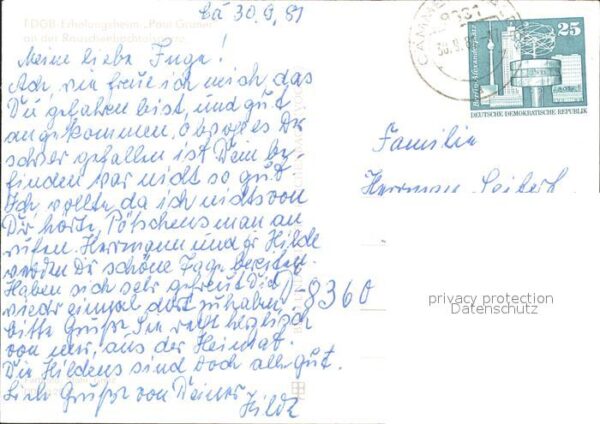 Cä 30.9.81
FDGB-Erholungsheim "Paul Gruner"
an der Rauschenbachtalsperre
Meine liebe Inge!
Ach, wie freue ich mich das
Du gefahren bist, und gut
angekommen, obwohl es Dir
schwer gefallen ist Dein be-
finden war nicht so gut
Ich wollte, da ich nichts von
Dir hörte, Pötschens man an
rufen. Herrmann und Hilde
werden Dir schöne Tage bereiten.
Haben sich sehr gefreut Dich
wieder einmal dort zu haben
bitte Grüße Sie recht herzlich
von mir, aus der Heimat.
Die Hildens sind doch alle gut.
Liebe Grüße von Deiner
Hilde
25
Berlin, Alexanderplatz
DEUTSCHE DEMOKRATISCHE REPUBLIK
Familie
Herrman Seibert
D-8360
privacy protection
Datenschutz